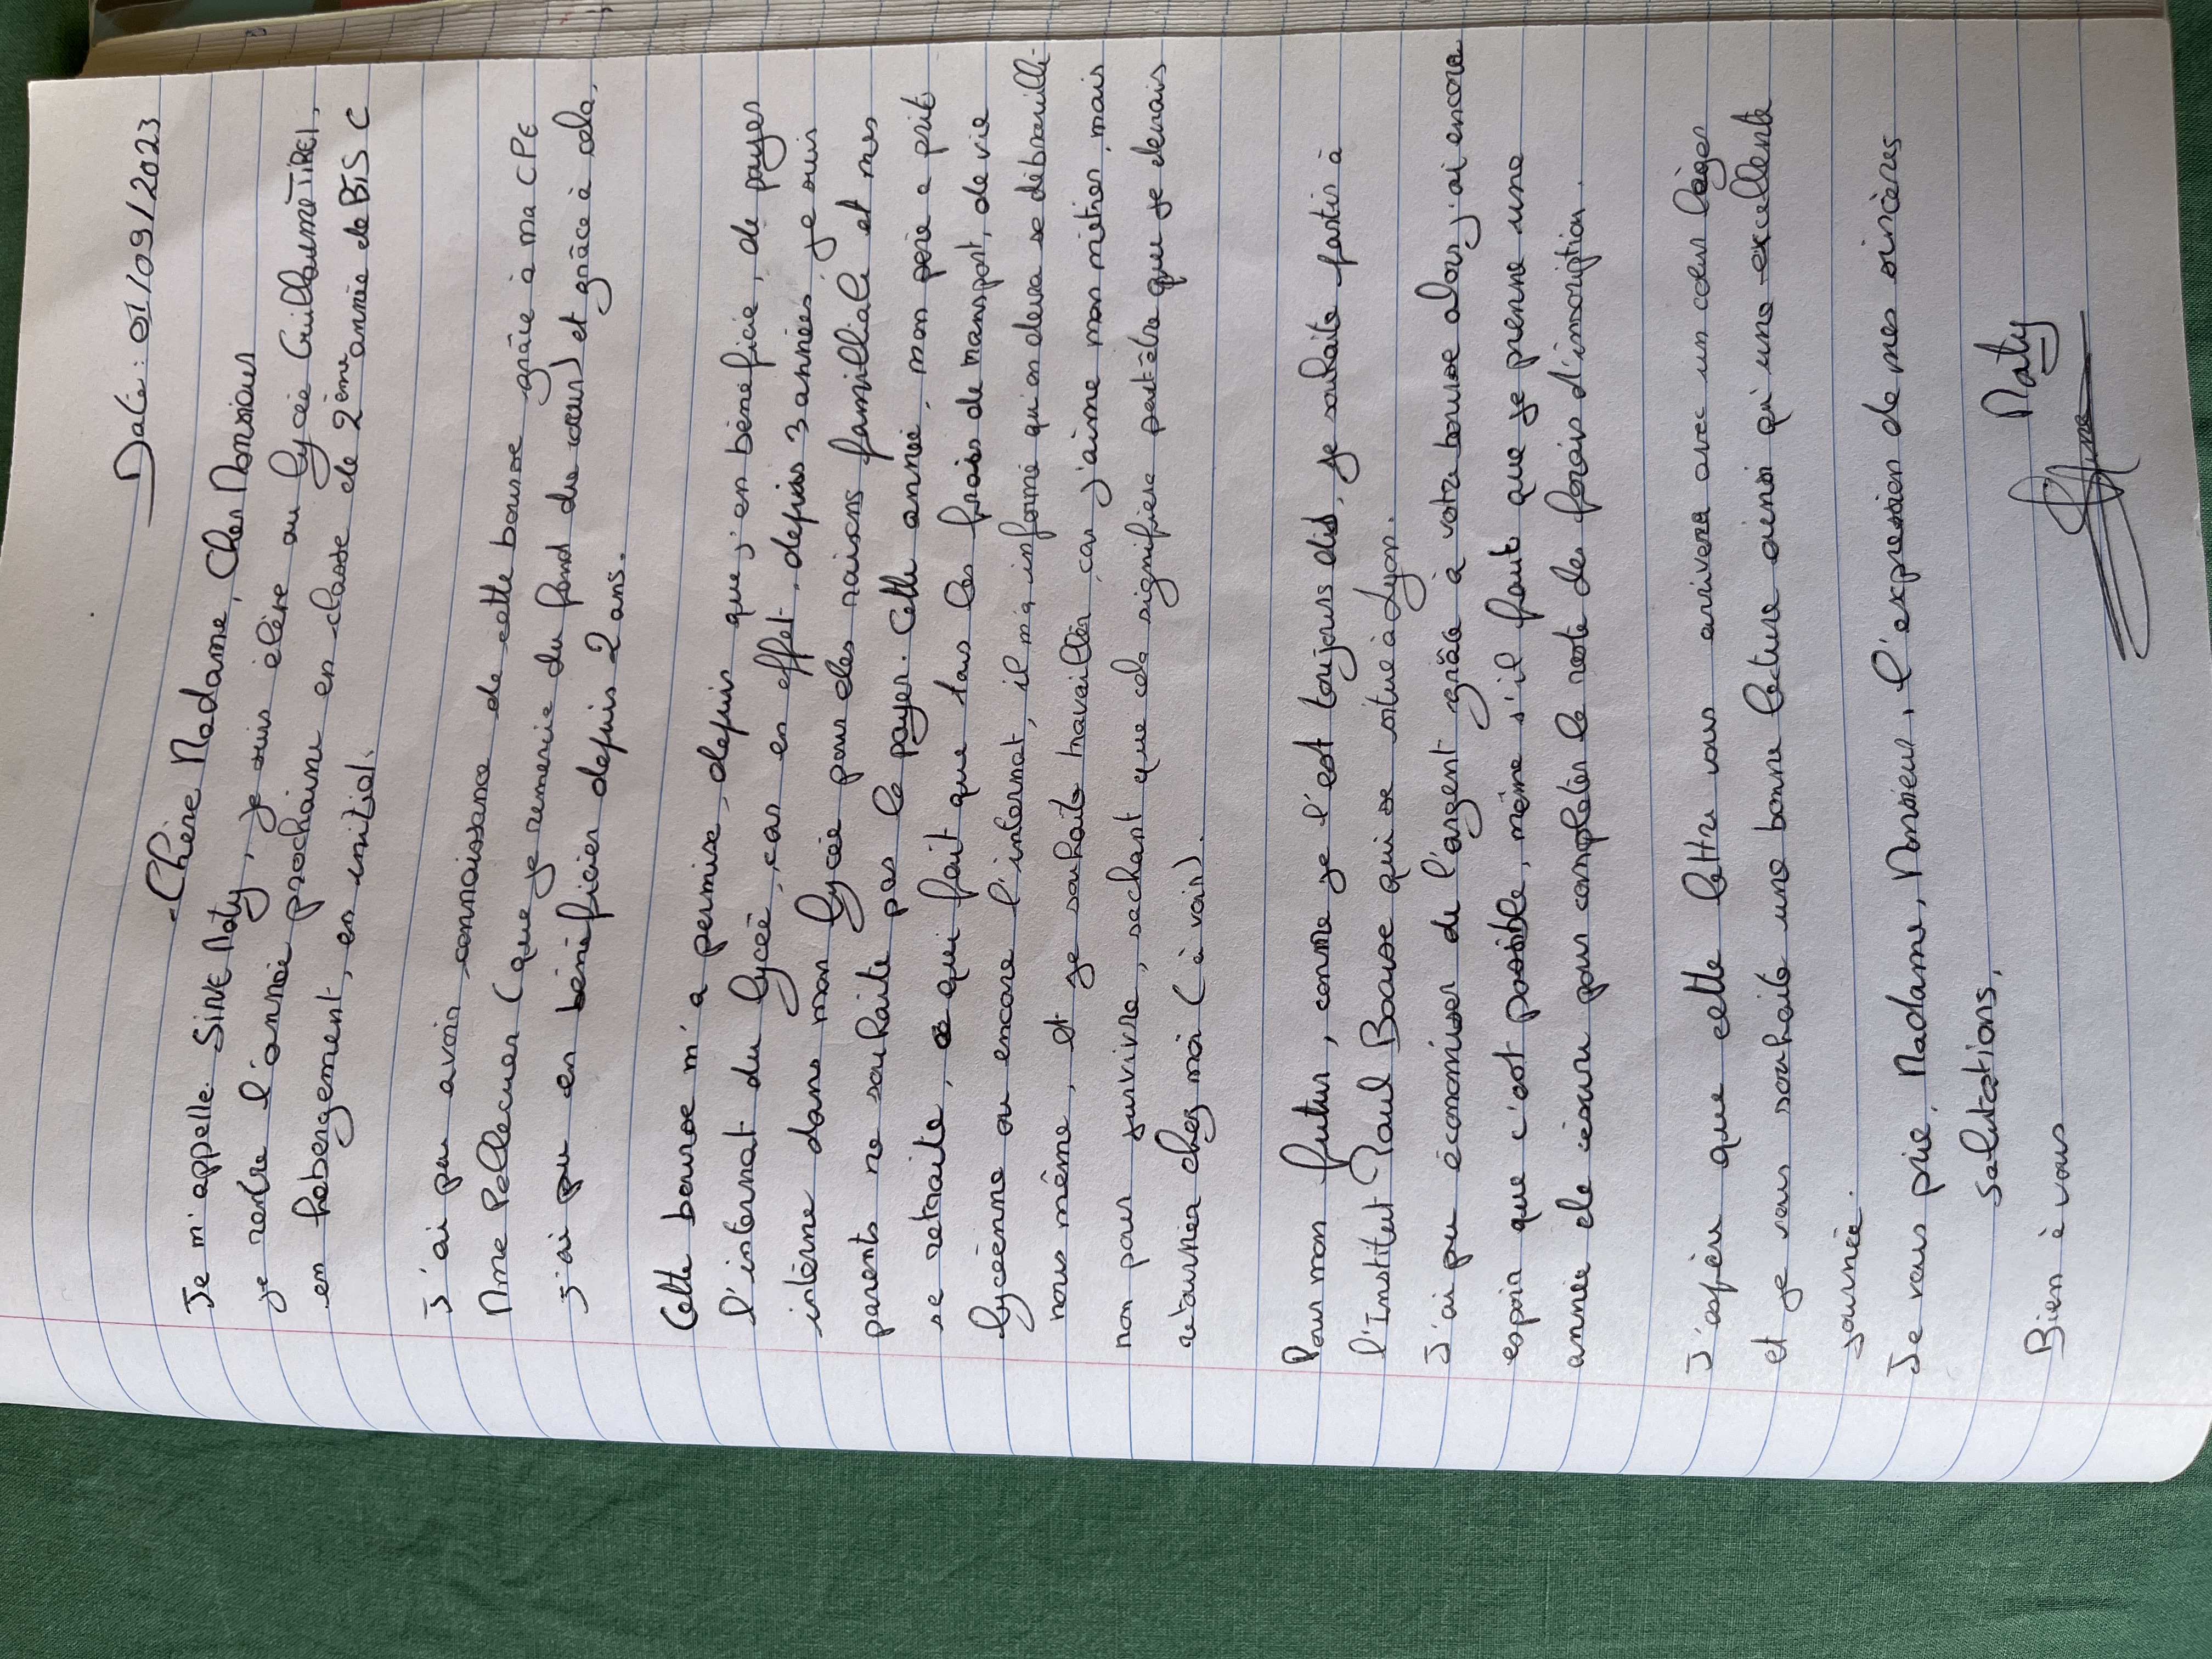 Date : 01/09/2023
Chère Madame, Cher Monsieur
Je m'appelle SINE Maty, je suis élève au lycée Guillaume TIREL,
je rentre l'année prochaine en classe de 2ème année de BTS C
en hébergement, en initial.
J'ai pu avoir connaissance de cette bourse grâce à ma CPE
Mme Pellecuer (que je remercie du fond du cœur) et grâce à cela,
j'ai pu en bénéficier depuis 2 ans.
Cette bourse m'a permise, depuis que j'en bénéficie, de payer
l'internat du lycée, car en effet, depuis 3 années je suis
interne dans mon lycée pour des raisons familliale et mes
parents ne souhaite pas le payer. Cette année, mon père a prit
se retraite, ce qui fait que tous les frais de transport, de vie
lycéenne ou encore l'internat, il m'a informé qu'on devra se débrouillé
nous même, et je souhaite travailler, car j'aime mon métier, mais
non pour survivre, sachant que cela signifiera peut-être que je devrais
retourner chez moi (à voir).
Pour mon futur, comme je l'est toujours dit, je souhaite partir à
l'Institut Paul Bocuse qui se situe à Lyon.
J'ai pu économiser de l'argent grâce à votre bourse alors j'ai encore
espoir que c'est possible, même s'il faut que je prenne une
année de césure pour compléter le reste des frais d'inscription.
J'espère que cette lettre vous arrivera avec un cœur léger
et je vous souhaite une bonne lecture ainsi qu'une excellente
journée.
Je vous prie, Madame, Monsieur, l'expression de mes sincères
salutations,
Bien à vous
Maty